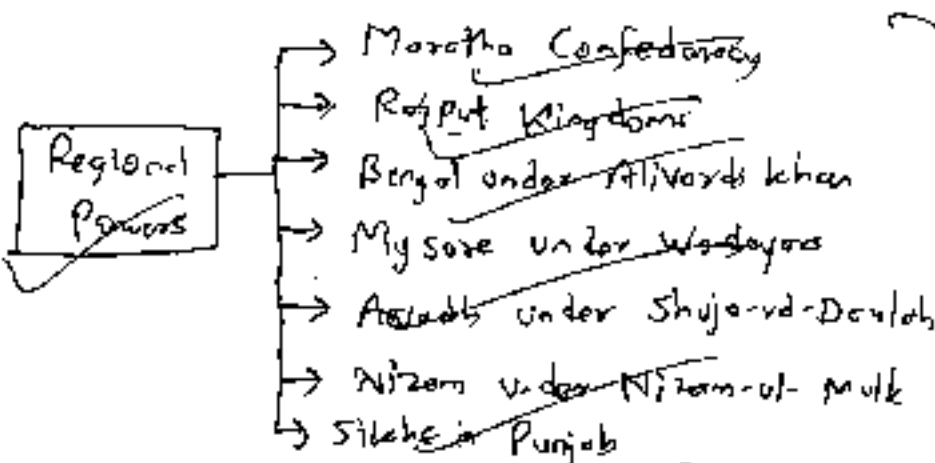 Regional
Powers
Maratha Confedaracy
Rajput Kingdoms
Bengal under Alivardi khan
Mysore under Wodayars
Awadh under Shuja-ud-Daulah
Nizam under Nizam-ul-Mulk
Sikhs in Punjab